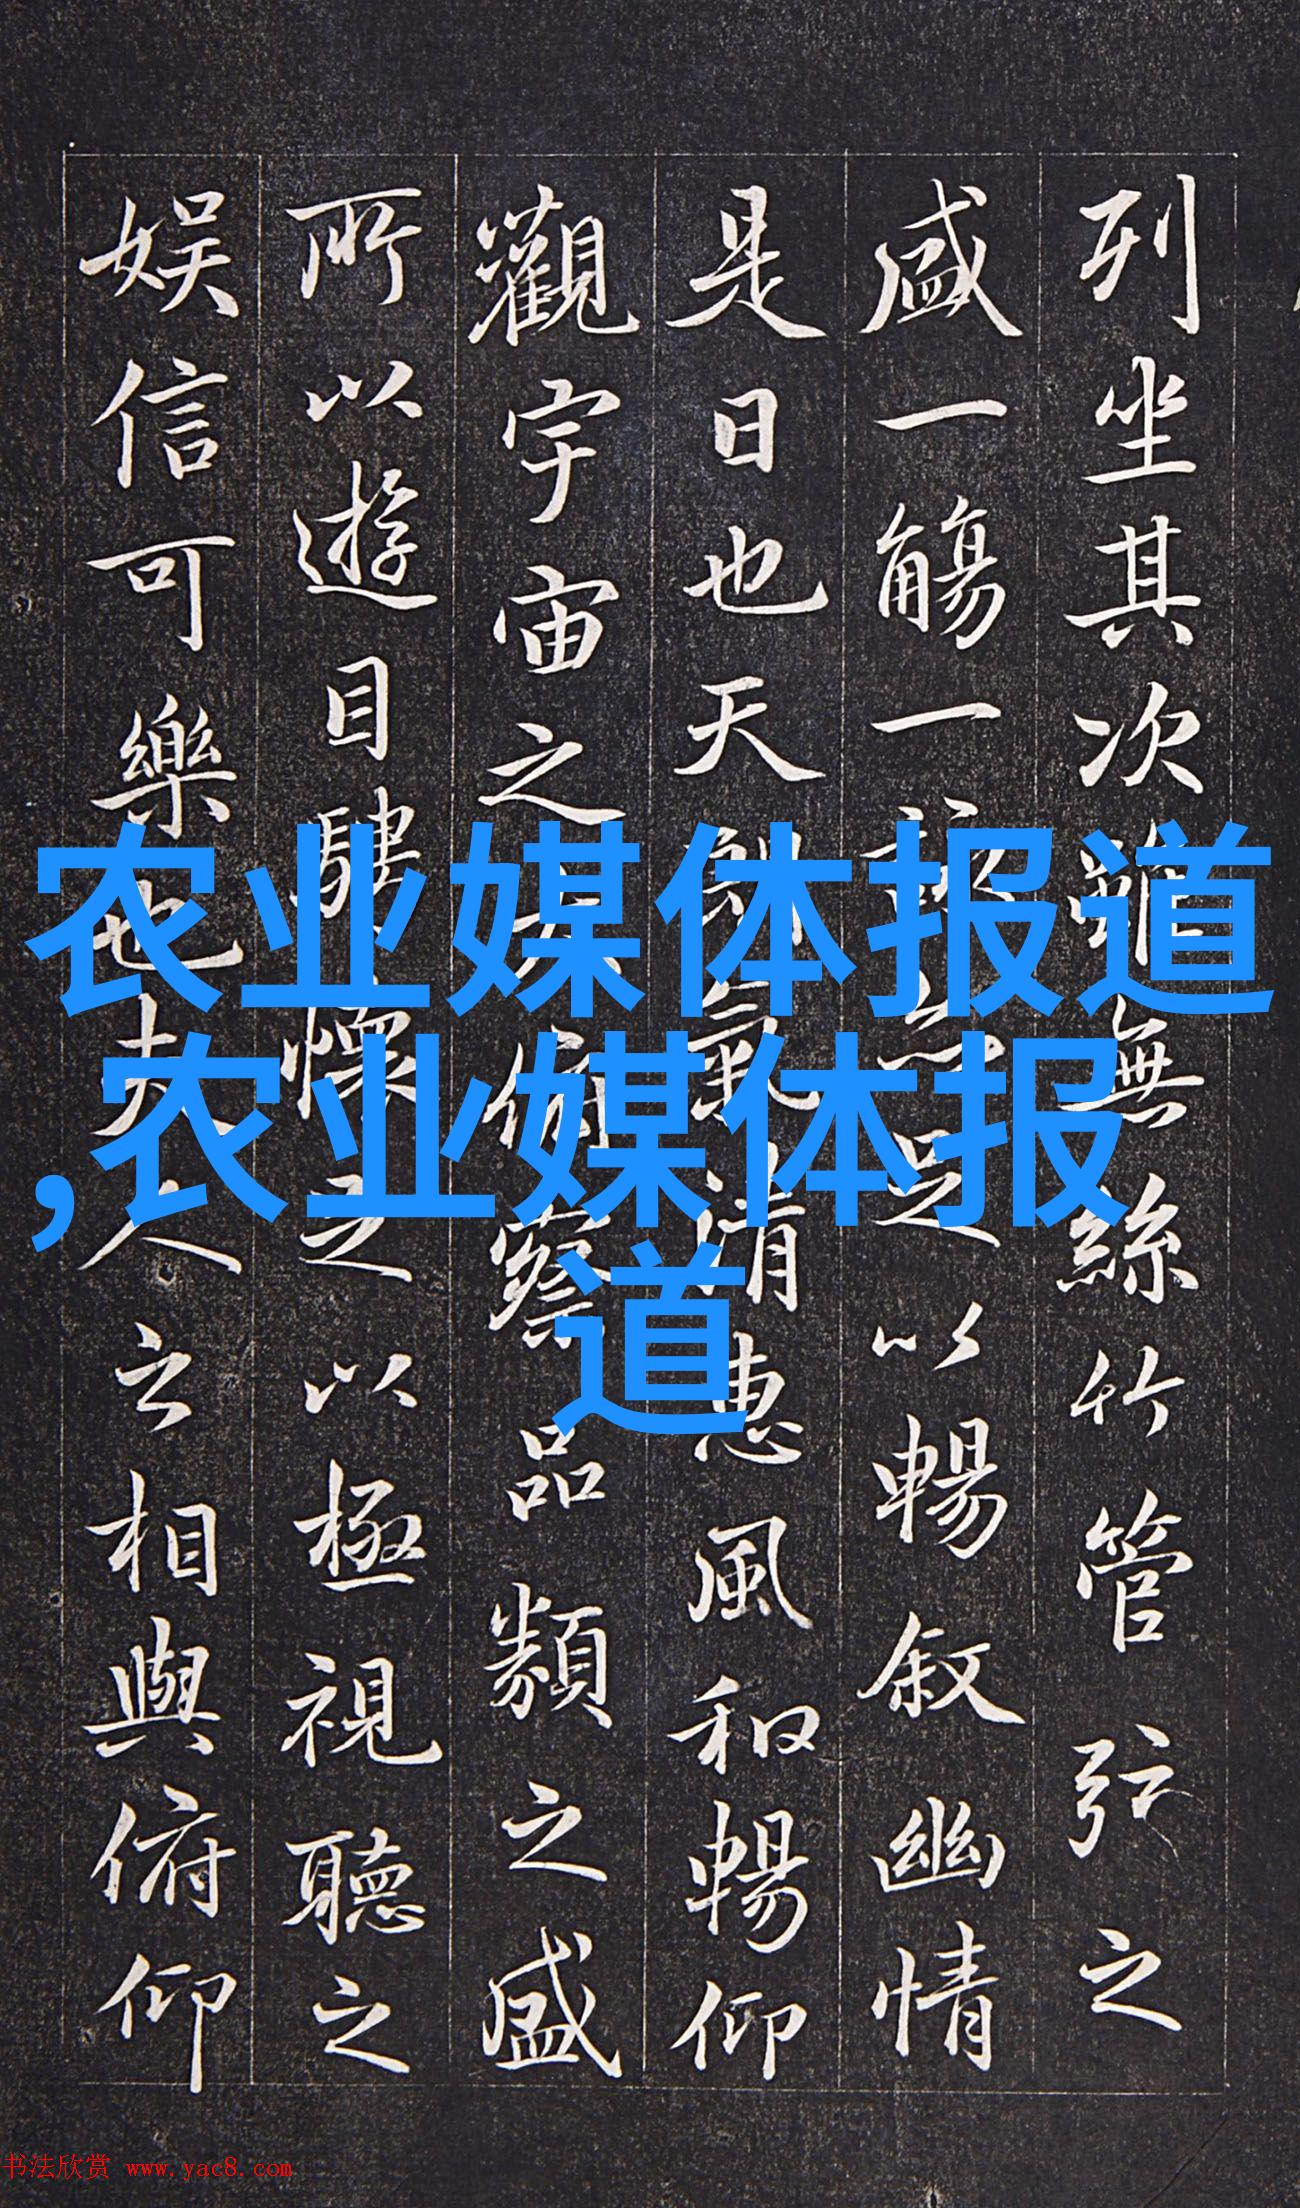 列坐其次雖無絲竹管弦之
盛一觴一詠亦足以暢叙幽情
是日也天朗氣清惠風和暢仰
觀宇宙之大俯察品類之盛
所以遊目騁懷足以極視聽之
娱信可樂也夫人之相與俯仰
农业媒体报道
,农业媒体报
道
书法欣赏 www.yac8.com